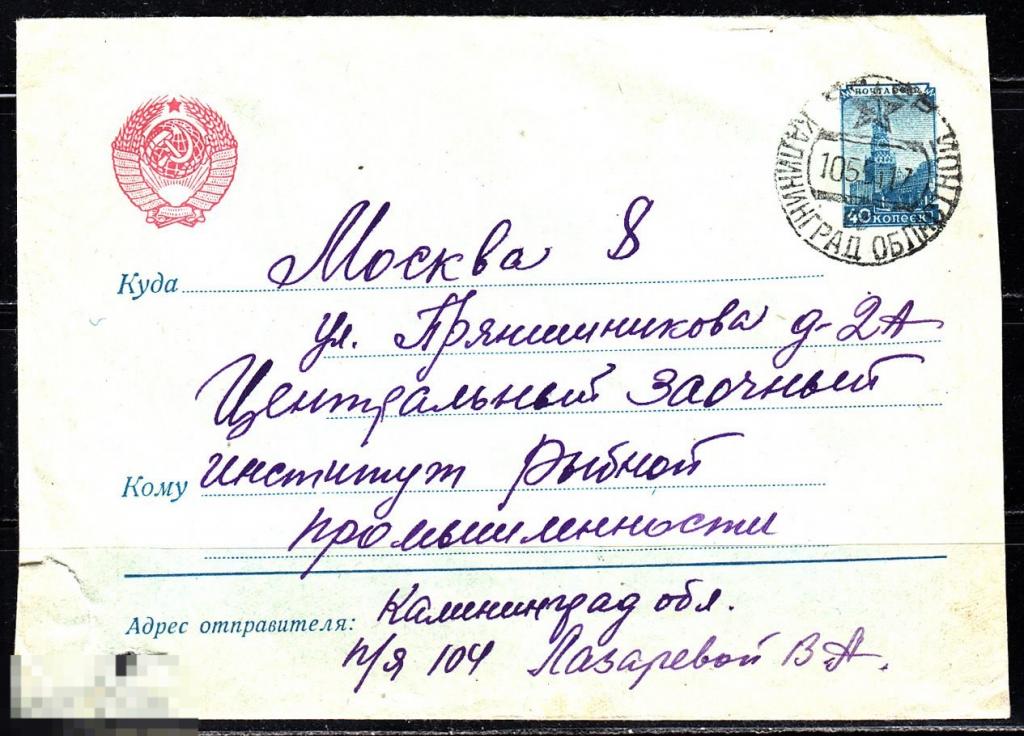 ПОЧТА СССР
40 КОПЕЕК
КАЛИНИНГРАД ОБЛ.
Куда Москва 8
ул. Прянишникова д-2А
Центральный Заочный
Кому институт Рыбной
промышленности
Адрес отправителя: Калининград обл.
п/я 104 Лазаревой В А.